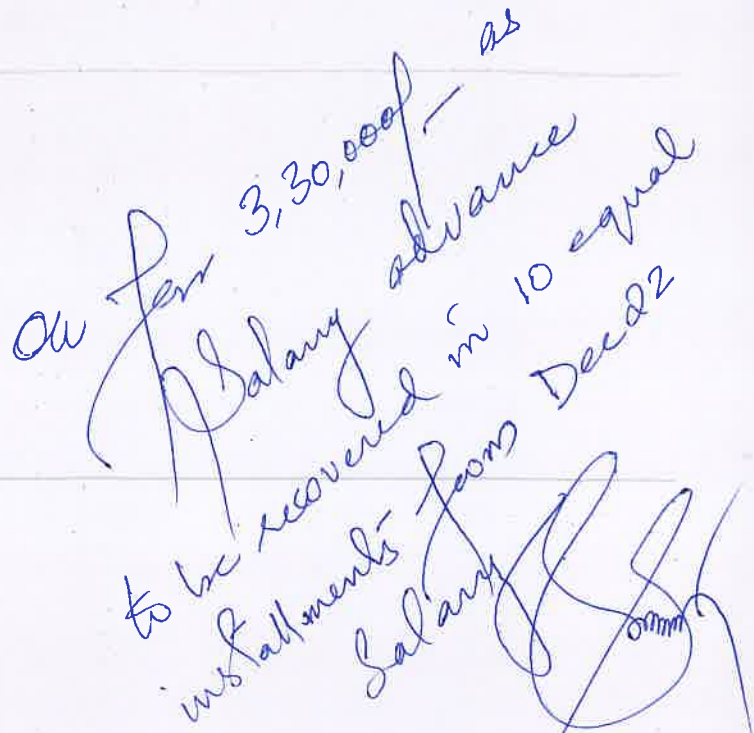 OK for 3,30,000/- as
Salary advance
to be recovered in 10 equal
installments from Dec22
Salary